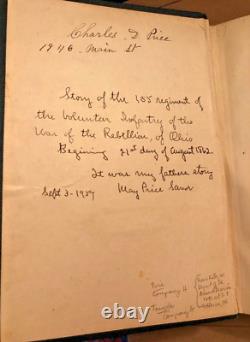 Charles D Price
1946 Main St
Story of the 105 regiment of
the Volunteer Infantry of the
War of the Rebellion, of Ohio
Begining 21st day of August 1862
It was my fathers story
Sept 3 - 1929 May Price Sanor
Company H
Company
© 000